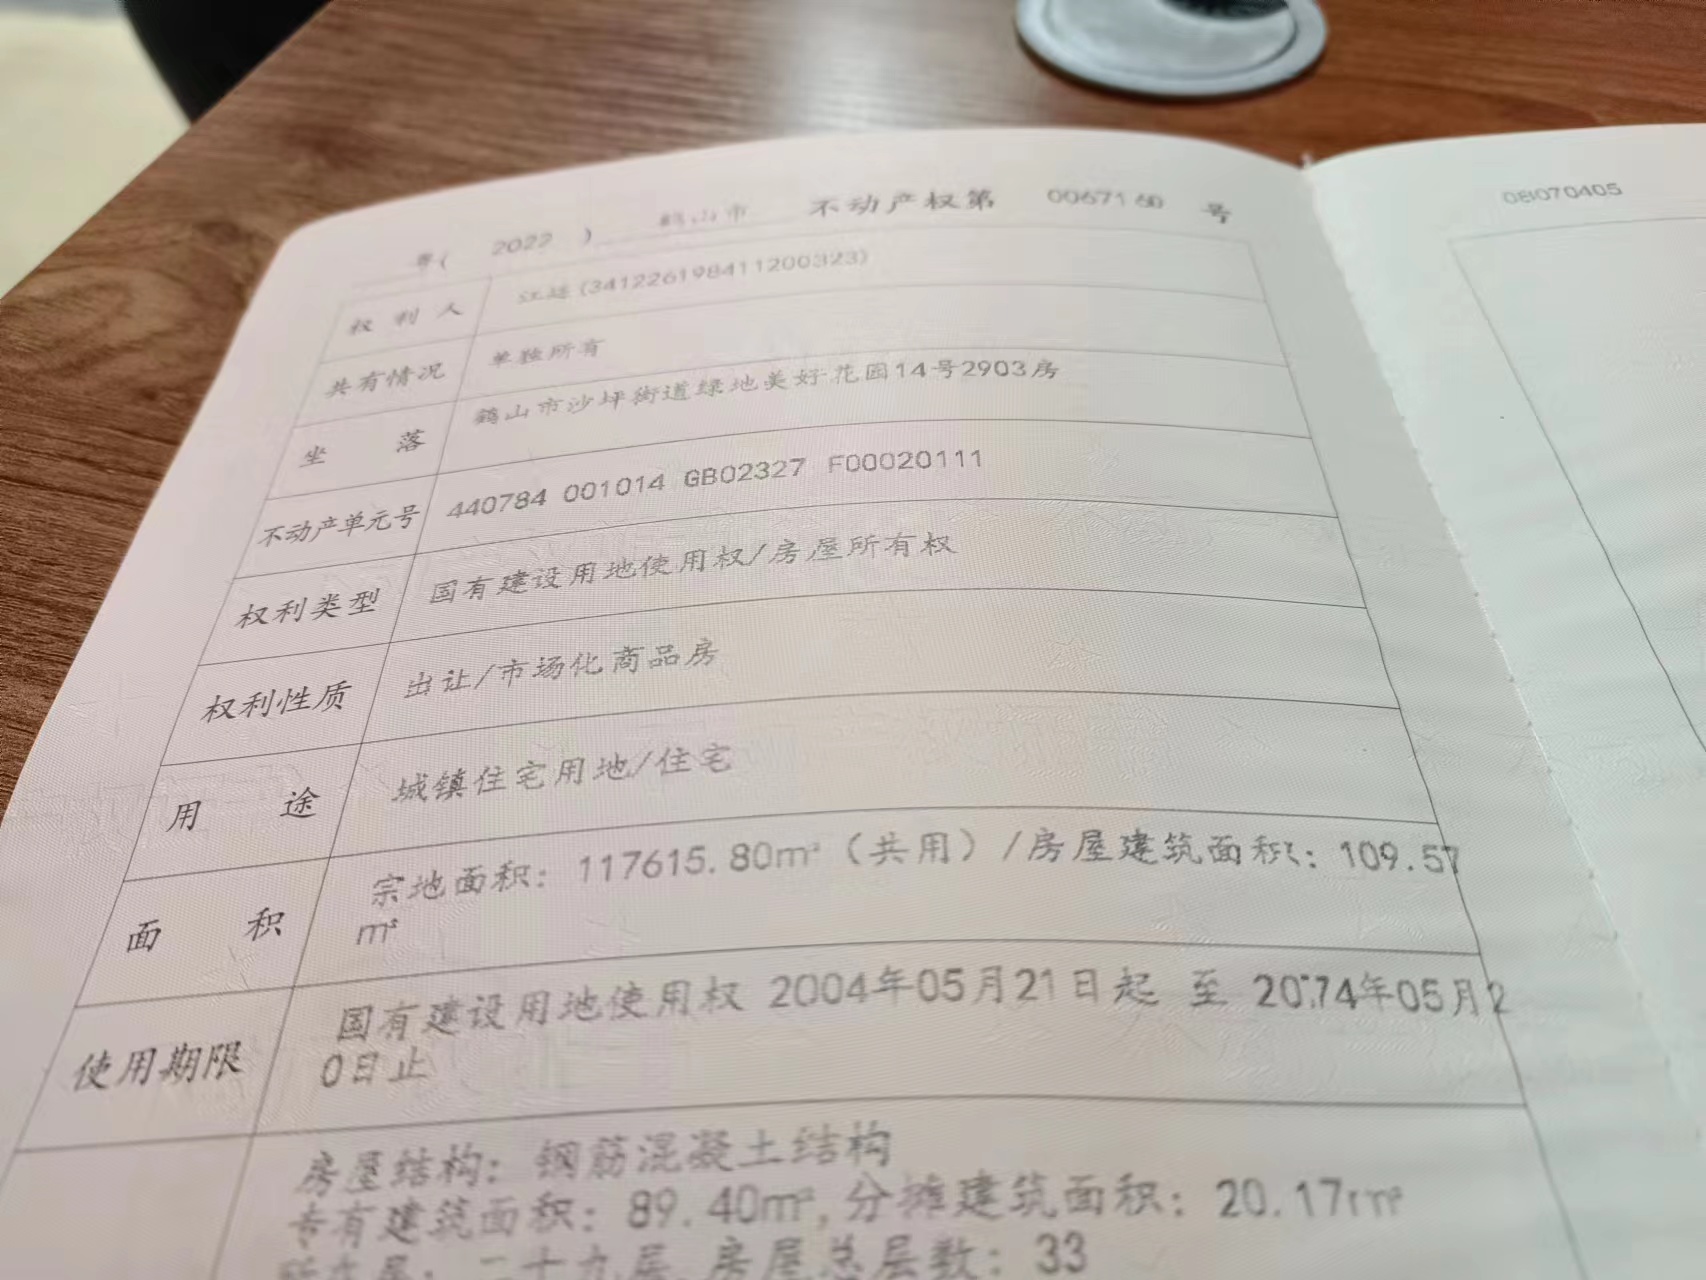 粤( 2022 ) 鹤山市 不动产权第 0067160 号
08070405
权利人 (341226198411200323)
共有情况 单独所有
坐落 鹤山市沙坪街道绿地美好花园14号2903房
不动产单元号 440784 001014 GB02327 F00020111
权利类型 国有建设用地使用权/房屋所有权
权利性质 出让/市场化商品房
用途 城镇住宅用地/住宅
面积 宗地面积：117615.80m²（共用）/房屋建筑面积：109.57
m²
使用期限 国有建设用地使用权 2004年05月21日起 至 2074年05月2
0日止
房屋结构：钢筋混凝土结构
专有建筑面积：89.40m²,分摊建筑面积：20.17m²
所在层：二十九层 房屋总层数：33